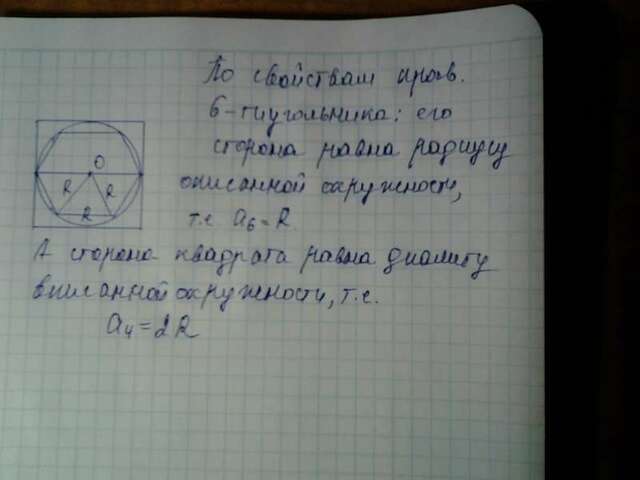 По свойствам прав.
6-тиугольника: его
сторона равна радиусу
описанной окружности,
т.е a₆ = R.
А сторона квадрата равна диаметру
вписанной окружности, т.е.
a₄ = 2R
O
R
R
R